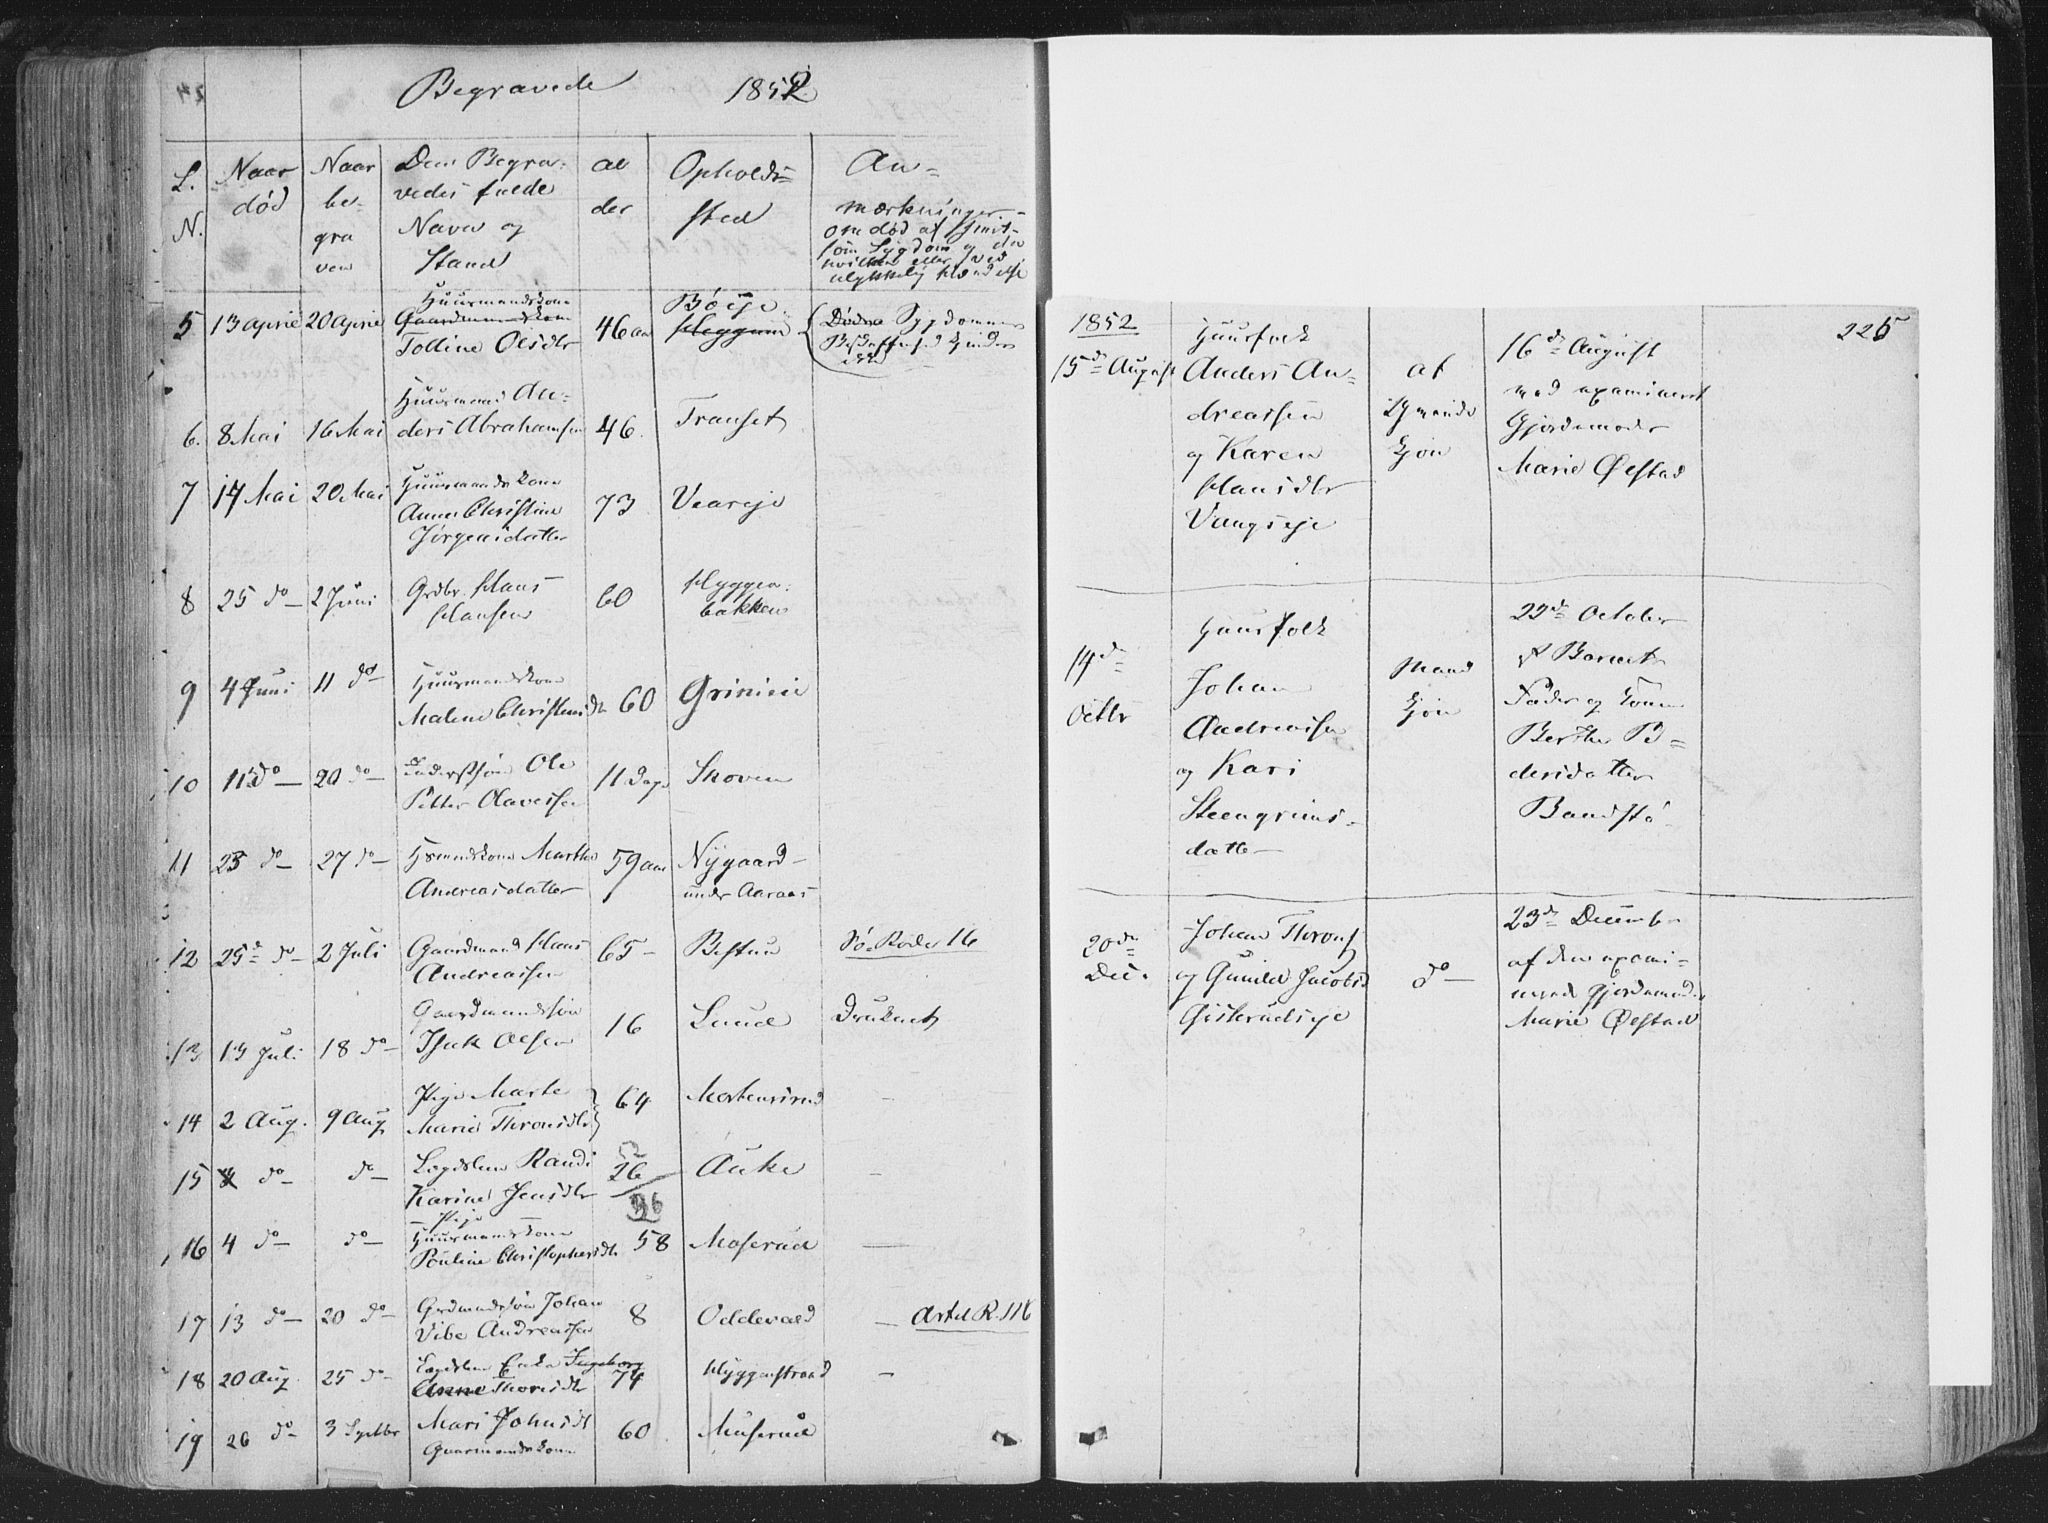 Begravede 1852
L. N.
Naar død
Naar be- gra ven
Den Begra- vedes fulde Navn og Stand
Al der
Opholds= sted
An= mærkninger om død af smit- som Sygdom og den hvilken eller ved ulykkelig Hændelse
5 13 April 20 April Huusmandskone Gaardmandskone Tolline Olsdtr 46 aar Böeje Hyggen Döden Sygdommens Beskaffenhed kjendes ikke
6. 8 Mai 16 Mai Huusmand An= ders Abrahamsen 46. Transet
7 17 Mai 20 Mai Huusmandskone Anne Christine Jørgensdatter 73 Veareje
8 25 do 2 Juni Grdbr. Hans Hansen 60 Hyggen bakken
9 4 Juni 11 do Huusmandskone Malene Christensdt 60 Grimsie
10 11 do 20 do Inderstsøn Ole Petter Olavessen 11 Dage Skoven
11 23 do 27 do Hsmndskone Marthe Andreasdatter 59 aar Nygaard under Aaraas
12 25 de do 2 Juli Gaardmand Hans Andreassen 65 Bestun Sø. Rode 16
13 13 Juli 18 do Gaardmandssøn Isak Olsen 16 Lund Druknet
14 2 Aug. 9 Aug Pige Marte Marie Thronsdtr 64 Mortensrud
15 do do Lægdslem Randi Karine Jensdtr 26 36 Auke
16 4 do do Pige Huusmandskone Pouline Christophersdt 58 Moserud
17 13 do 20 do Grdmandssön Johan Vibe Andreassen 8 Oddevald Artil R. 116
18 20 Aug. 25 do Lægdslem Enke Ingeborg Anne Thorsdtr 74 Hyggenstrand
19 26 do 3 Septbr Mari Johnsdt Gaarmandskone 60 Muserud
1852
225
15 de August
Huusfolk
Anders An=
dreassen
og Karen
Hansdtr
Vangseje
af
Mands
kjøn
16 de August
med examineret
Gjordemoder
Marie Ølstad
14 de
Octbr
Huusfolk
Johan
Andreassen
og Kari
Steengrims-
datter
Mand
kjøn
22 de October
af Barnets
Fader og Konen
Berthe P=
dersdatter
Baadstø
20 de
Dec.
Johan Throns
og Gunild Jacobsd
Gisterudseje
do
23 de Decembr
af den exami-
nerede Gjordemoder
Marie Ølstad